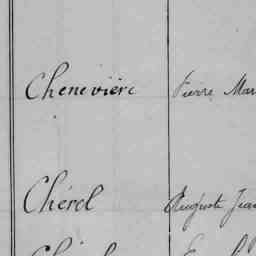 Chenevière Pierre Mar
Chérel Auguste Jean